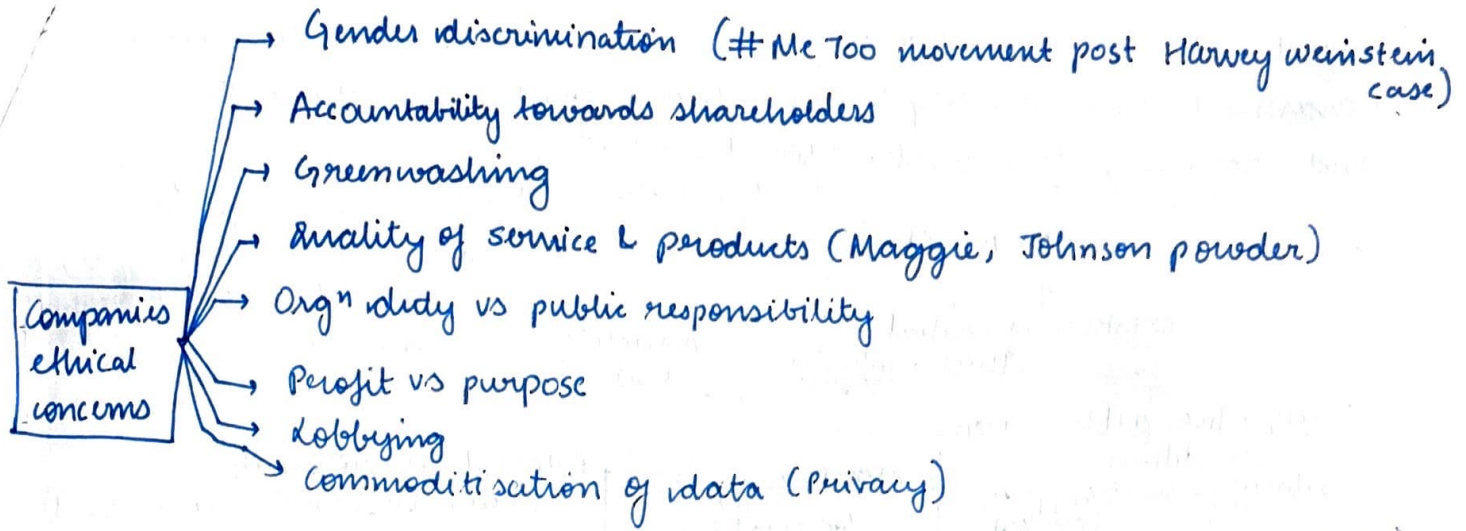 Gender discrimination (# Me Too movement post Harvey weinstein
case)
Accountability towards shareholders
Greenwashing
Quality of service & products (Maggie, Johnson powder)
Orgⁿ duty vs public responsibility
Companies
ethical
concerns
Profit vs purpose
Lobbying
Commoditisation of data (Privacy)